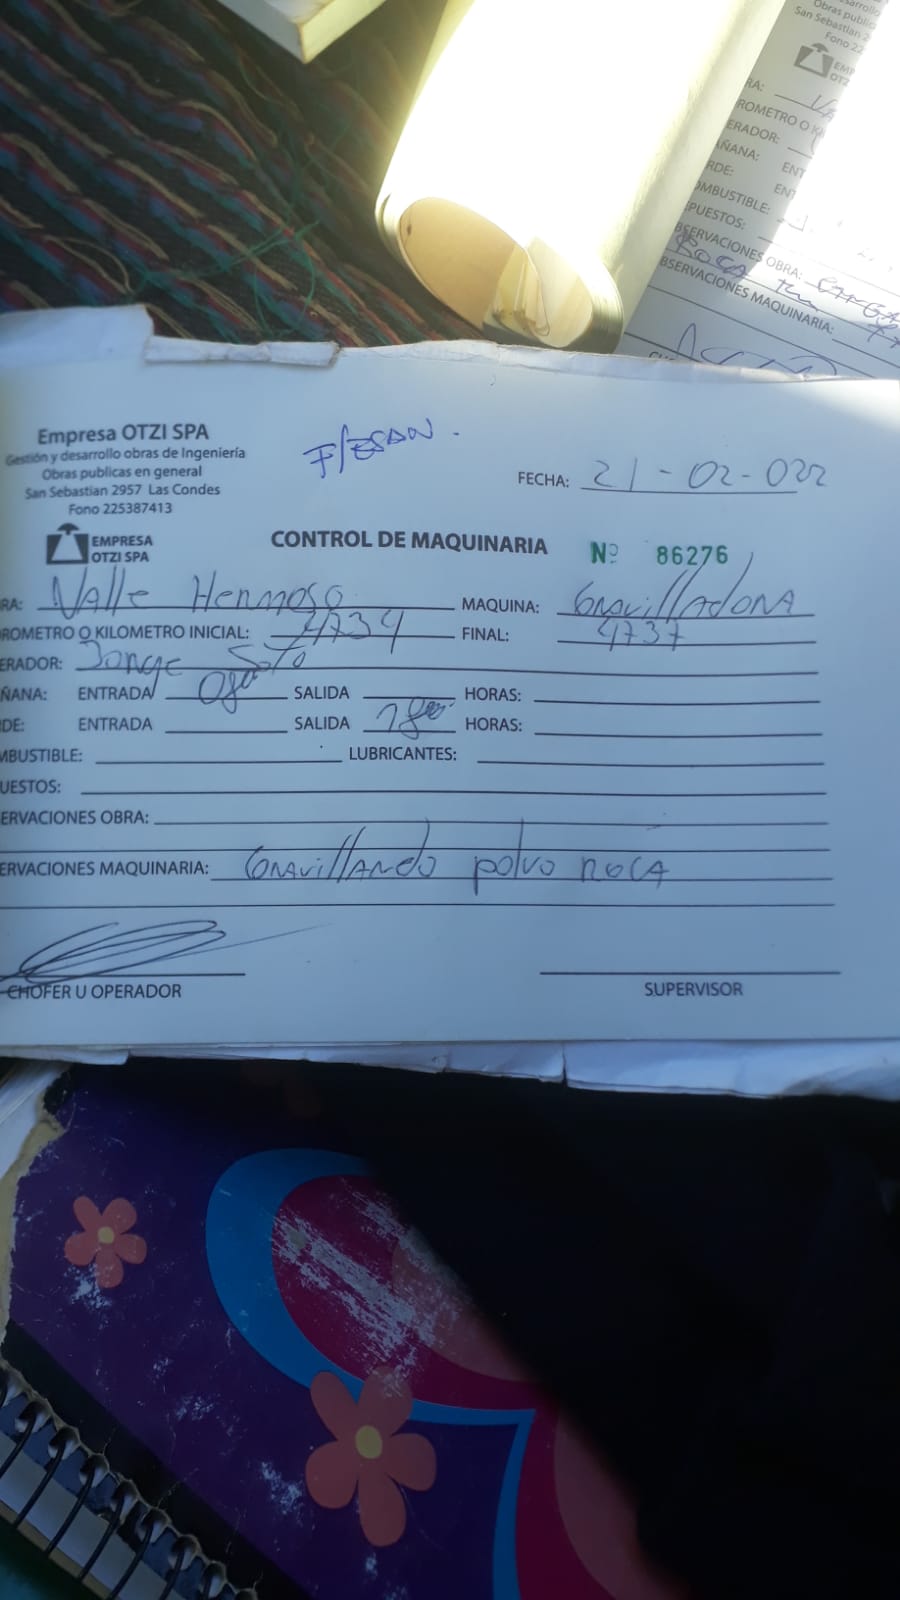 Obras publicas
San Sebastian 2
Fono 22
EMP
OTZ
RA:
ROMETRO O K
ERADOR:
AÑANA: ENT
RDE: ENT
OMBUSTIBLE:
PUESTOS:
BSERVACIONES OBRA:
ROCA
BSERVACIONES MAQUINARIA:
Empresa OTZI SPA
Gestión y desarrollo obras de Ingeniería
Obras publicas en general
San Sebastian 2957 Las Condes
Fono 225387413
EMPRESA
OTZI SPA
FECHA: 21-02-022
CONTROL DE MAQUINARIA Nº 86276
RA: Valle Hermoso MAQUINA: Gravilladora
OROMETRO O KILOMETRO INICIAL: 4734 FINAL: 4737
ERADOR: Jorge Soto
ÑANA: ENTRADA 08⁰⁰ SALIDA HORAS:
DE: ENTRADA SALIDA 18⁰⁰ HORAS:
MBUSTIBLE: LUBRICANTES:
UESTOS:
ERVACIONES OBRA:
ERVACIONES MAQUINARIA: Gravillando polvo roca
CHOFER U OPERADOR SUPERVISOR